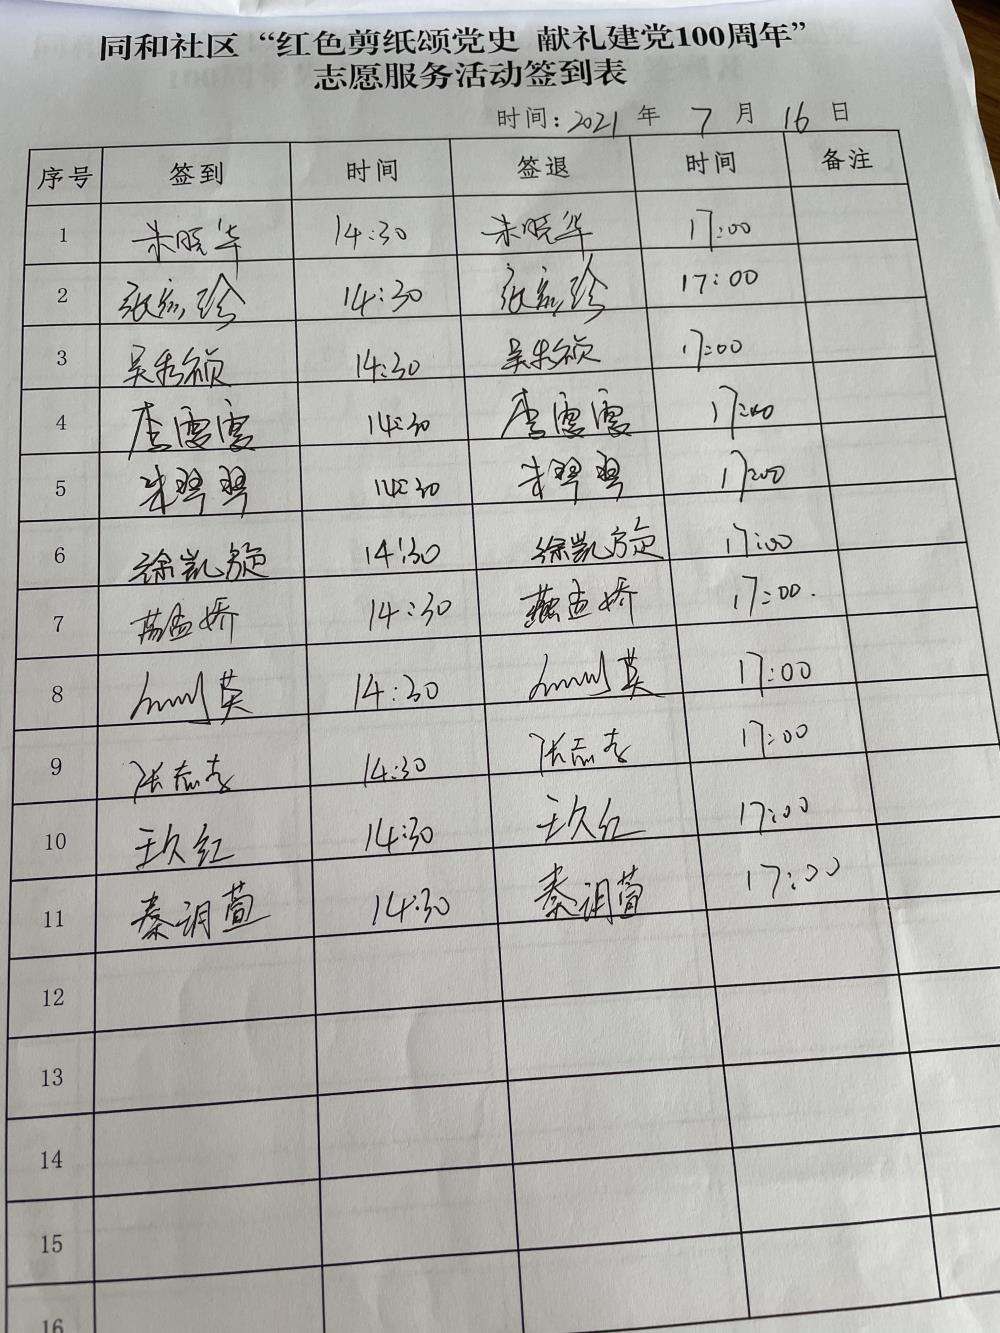 同和社区“红色剪纸颂党史 献礼建党100周年”
志愿服务活动签到表
时间:2021 年 7 月 16 日
序号 签到 时间 签退 时间 备注
1 朱晓华 14:30 朱晓华 17:00
2 14:30 17:00
3 吴秀祯 14:30 吴秀祯 17:00
4 李雯雯 14:30 李雯雯 17:00
5 朱琴琴 14:30 朱琴琴 17:00
6 徐凯旋 14:30 徐凯旋 17:00
7 孟娇 14:30 孟娇 17:00.
8 英 14:30 英 17:00
9 张志 14:30 张志 17:00
10 王久红 14:30 王久红 17:00
11 秦诩萱 14:30 秦诩萱 17:00
12
13
14
15
16